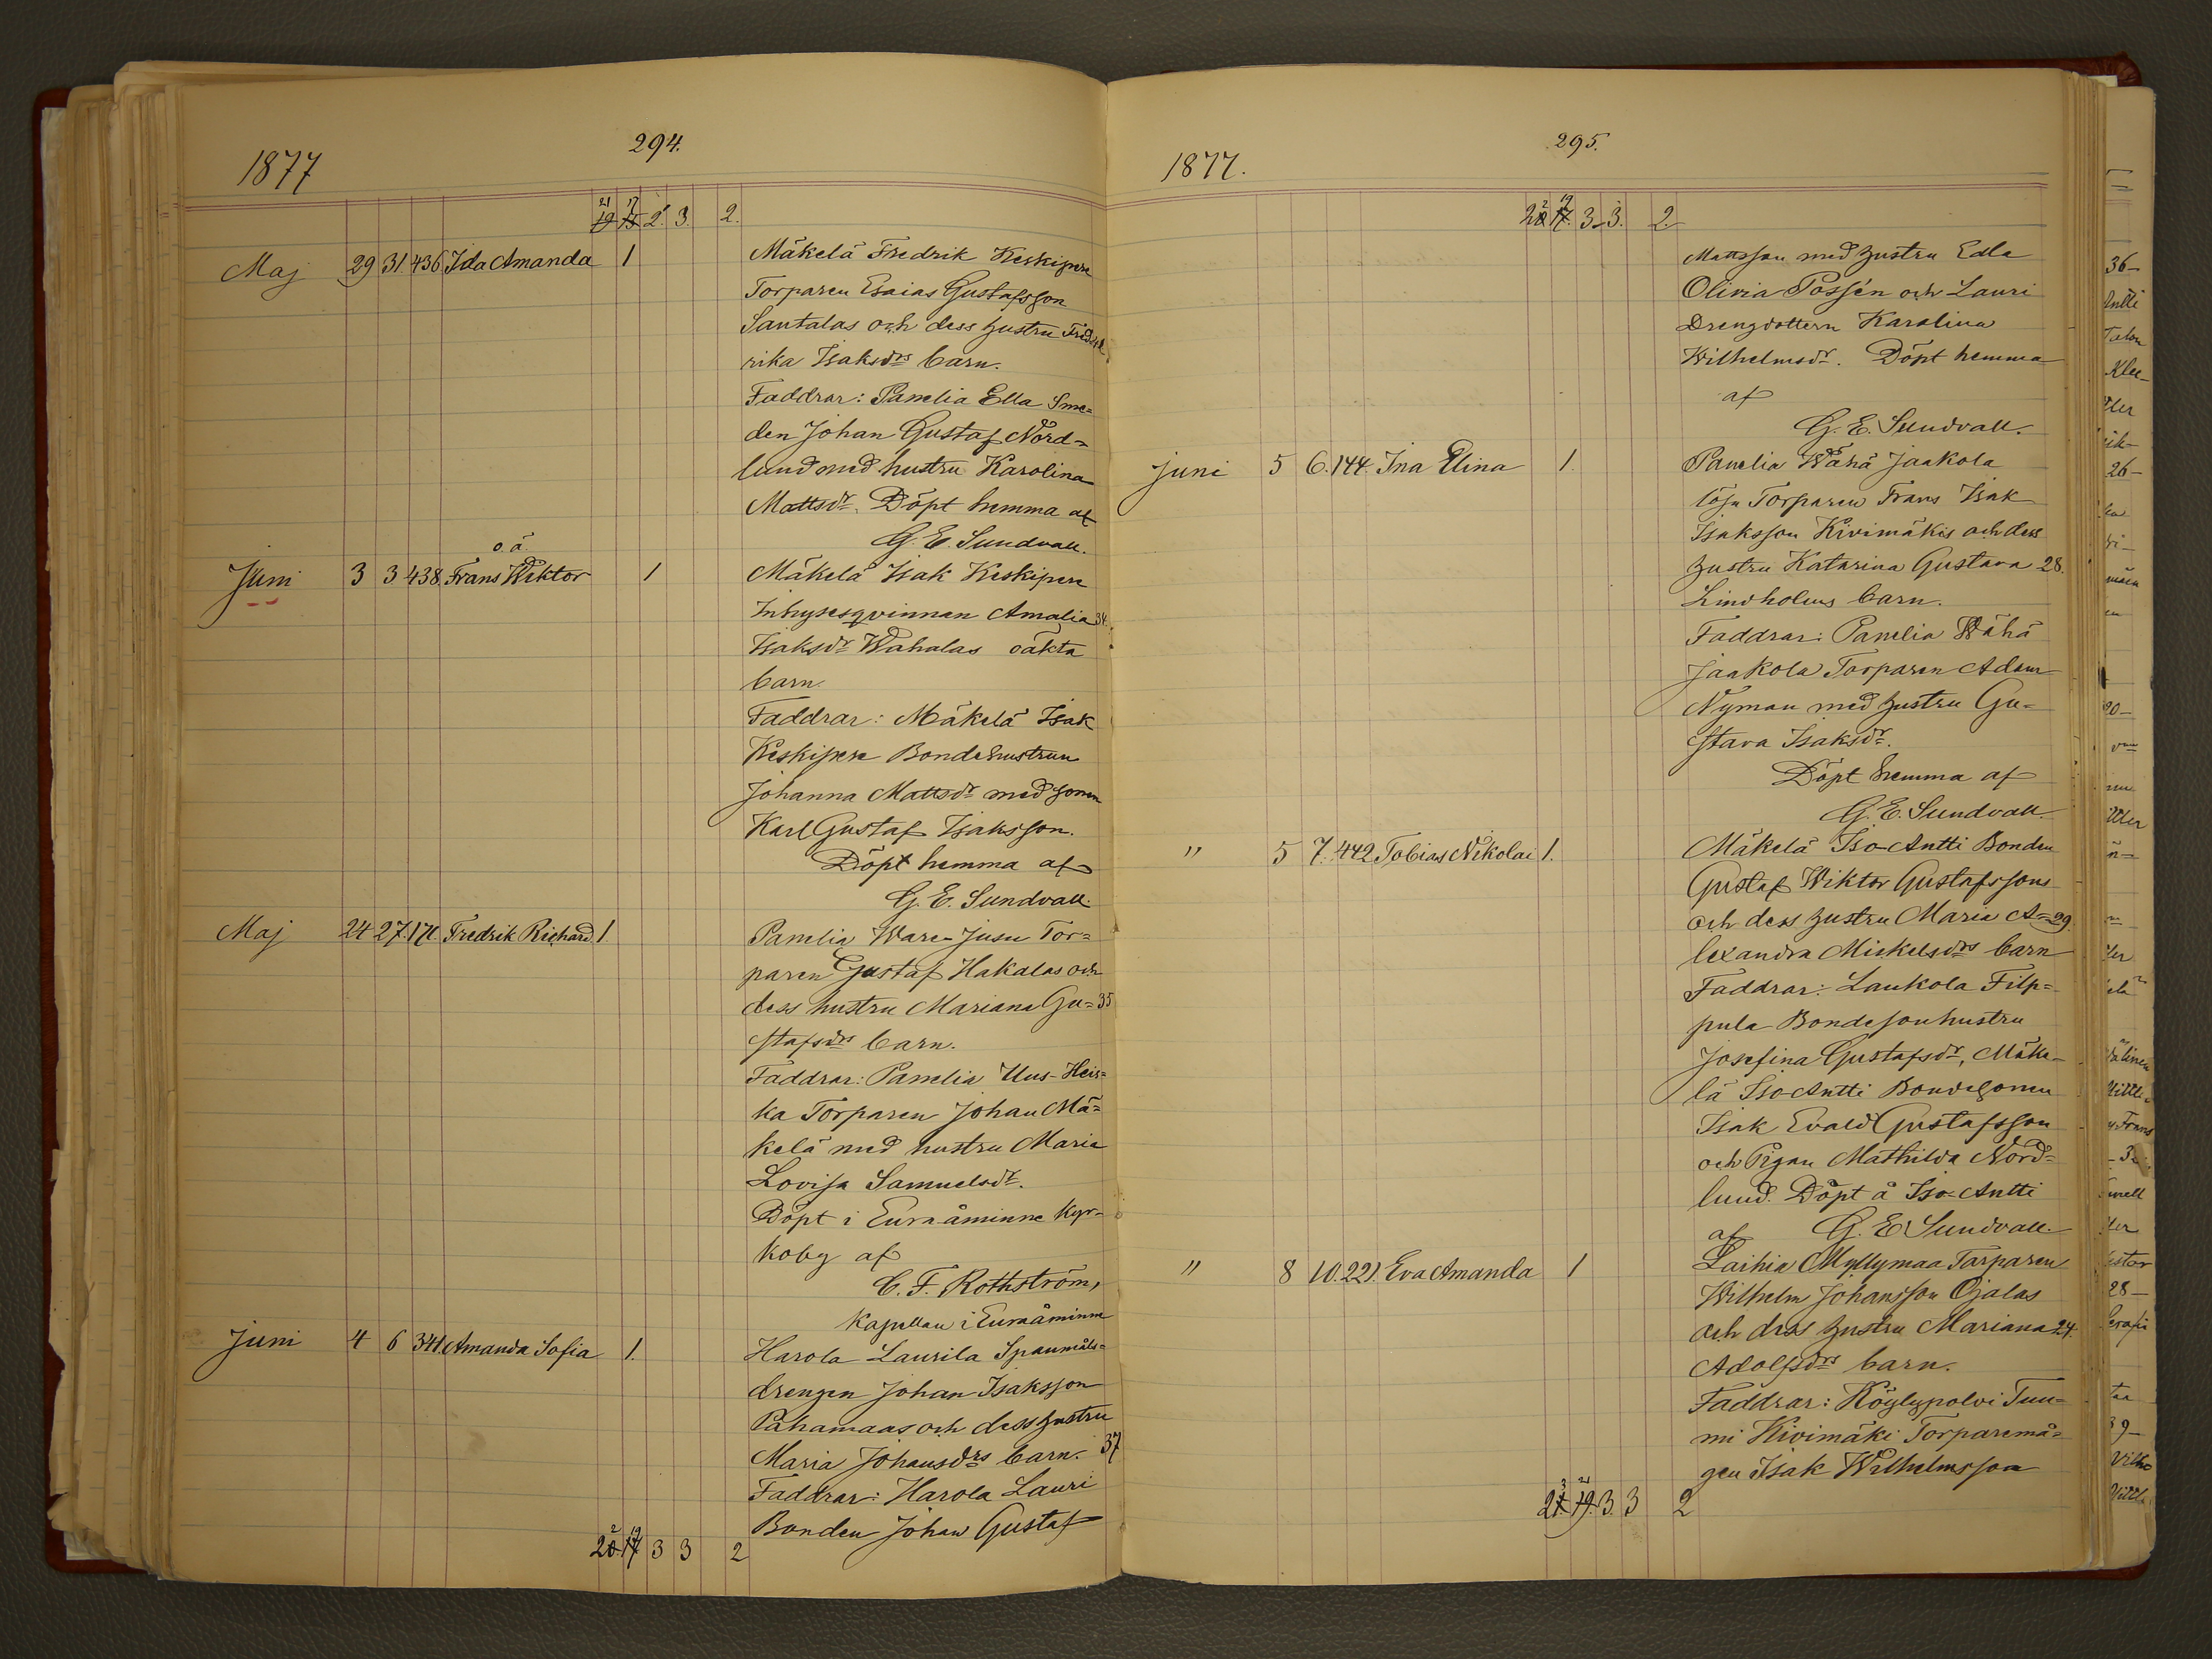 294.
1877
21 17
19 15 2. 3. 2.
Maj 29 31 436 Ida Amanda 1 Mäkelä Fredrik Keskipere
Torparen Esaias Gustafsson
Santalas och dess hustru Fred
rika Isaksdrs barn.
Faddrar: Panelia Ella Sme=
den Johan Gustaf Nord=
lund med hustru Karolina
Mattsdr. Döpt hemma af
G. E. Sundvall.
o. ä.
Juni 3 3 438. Frans Wiktor 1 Mäkelä Isak Keskipere
Inhysesqvinnan Amalia 34.
Isaksdr Wahalas oäkta
barn.
Faddrar: Mäkelä Isak
Keskipere Bondehustrun
Johanna Mattsdr med sonen
Karl Gustaf Isaksson.
Döpt hemma af
G. E. Sundvall.
Maj 24 27 171. Fredrik Richard 1. Panelia Ware-Jusu Tor=
paren Gustaf Hakalas och
dess hustru Mariana Gu= 35
stafsdrs barn.
Faddrar: Panelia Uus-Heis=
ka Torparen Johan Mä=
kelä med hustru Maria
Lovisa Samuelsdr.
Döpt i Euraåminne kyr=
koby af
C. F. Rothström,
Kapellan i Euraåminne
Juni 4 6 341. Amanda Sofia 1. Harola Laurila Spanmåls=
drengen Johan Isaksson
Pahamaas och dess hustru
Maria Johansdrs barn. 37
Faddrar: Harola Lauri
Bonden Johan Gustaf
2 19
20. 17 3 3 2
295.
1877.
2 19
20 17. 3. 3. 2.
Mattsson med hustru Edla
Olivia Possén och Lauri
Drengdottern Karolina
Wilhelmsdr. Döpt hemma
af
G. E. Sundvall.
Juni 5 6. 144. Ina Elina 1. Panelia Wähä Jaakola
löja Torparen Frans Isak
Isaksson Kivimäkis och dess
hustru Katarina Gustava 28.
Lindholms barn.
Faddrar: Panelia Wähä
Jaakola Torparen Adam
Nyman med hustru Gu=
stava Isaksdr.
Döpt hemma af
G. E. Sundvall.
" 5 7. 442 Tobias Nikolai 1. Mäkelä Iso-Antti Bonden
Gustaf Wiktor Gustafssons
och dess hustru Maria A= 29
lexandra Mickelsdrs barn
Faddrar: Laukola Filp=
pula Bondesonhustru
Josefina Gustafsdr, Mäke=
lä Iso Antti Bondesonen
Isak Evald Gustafsson
och Pigan Mathilda Nord=
lund. Döpt å Iso-Antti
af G. E. Sundvall.
" 8 10. 221. Eva Amanda 1 Laihia Myllymaa Torparen
Wilhelm Johansson Ojalas
och dess hustru Mariana 24.
Adolfsdrs barn.
Faddrar: Köylypolvi Tuu=
mi Kivimäki Torparemå=
gen Isak Wilhelmsson
3 21
21. 19. 3. 3 2